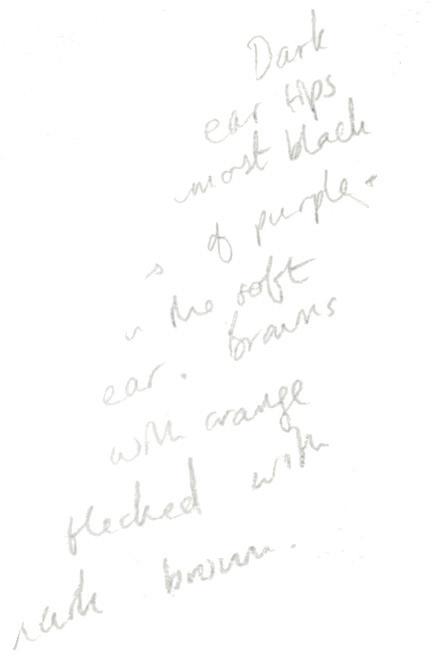 Dark
ear tips
most black
s of purple +
n the soft
ear. browns
with orange
flecked with
brown.